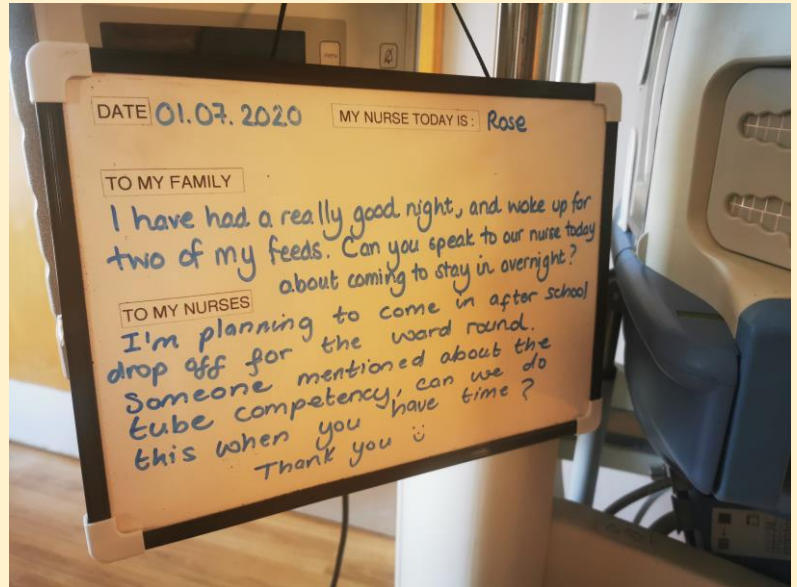 DATE 01.07.2020 MY NURSE TODAY IS: Rose
TO MY FAMILY
I have had a really good night, and woke up for
two of my feeds. Can you speak to our nurse today
about coming to stay in overnight?
TO MY NURSES
I'm planning to come in after school
drop off for the ward round.
Someone mentioned about the
tube competency, can we do
this when you have time?
Thank you :)